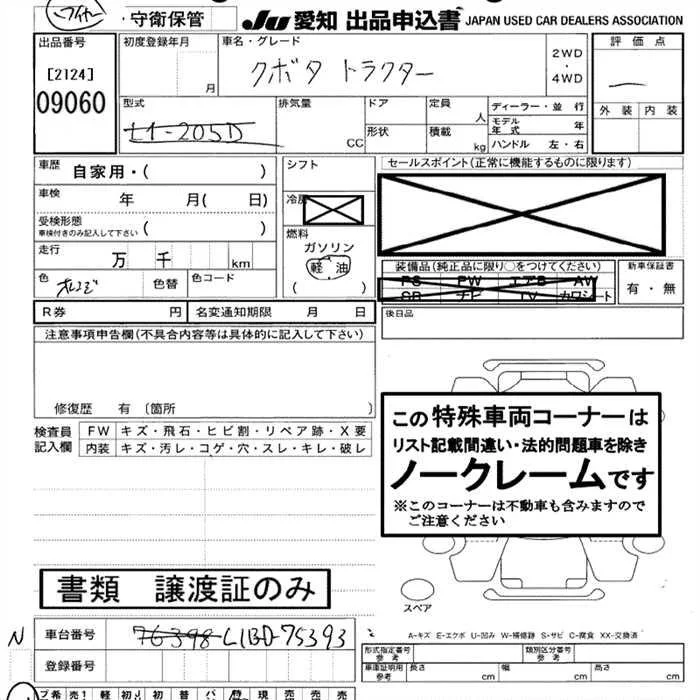 守衛保管
JU 愛知 出品申込書 JAPAN USED CAR DEALERS ASSOCIATION
出品番号
[2124]
09060
初度登録年月
月
車名・グレード
クボタ トラクター
2WD
・
4WD
評価点
外装 内装
型式
L1-205D
排気量
CC
ドア
形状
定員
人
積載
kg
ディーラー・並行
モデル年式 年
ハンドル 左・右
車歴 自家用・( )
車検 年 月( 日)
受検形態
車検付きのみ記入して下さい ( )
走行 万 千 km
色 オレンジ 色替 色コード
シフト
冷房
燃料
ガソリン
軽油
( )
セールスポイント(正常に機能するものに限ります)
装備品(純正品に限り○をつけてください)
PS PW エアB AW
SR ナビ TV カワシート
新車保証書
有・無
R券 円 名変通知期限 月 日
後日品
注意事項申告欄(不具合内容等は具体的に記入して下さい)
修復歴 有〔箇所 〕
検査員記入欄
FW キズ・飛石・ヒビ割・リペア跡・X要
内装 キズ・汚レ・コゲ・穴・スレ・キレ・破レ
この特殊車両コーナーは
リスト記載間違い・法的問題車を除き
ノークレームです
※このコーナーは不動車も含みますので
ご注意ください
書類 譲渡証のみ
スペア
A-キズ E-エクボ U-凹み W-補修跡 S-サビ C-腐食 XX-交換済
N
車台番号 76398 L1BD-75393
登録番号
形式指定番号
参考
類別区分番号
参考
車庫証明用
参考
長さ cm 幅 cm 高さ cm